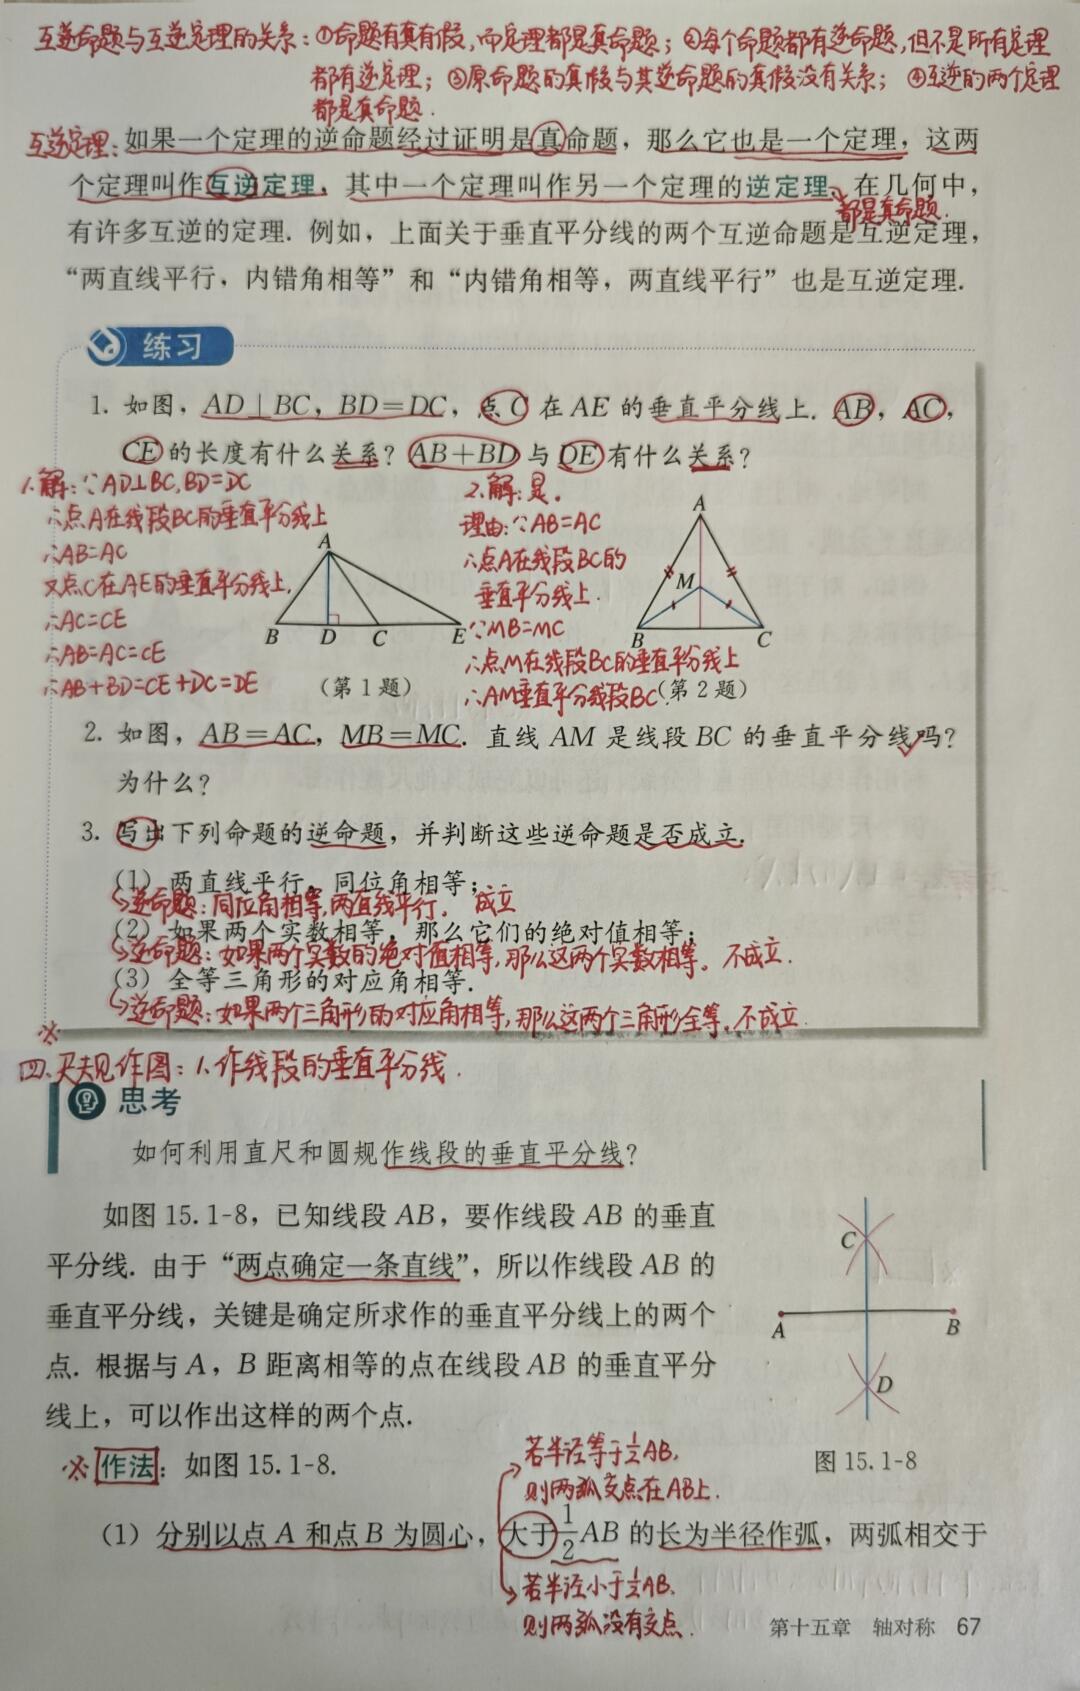 互逆命题与互逆定理的关系：①命题有真有假，而定理都是真命题；②每个命题都有逆命题，但不是所有定理
都有逆定理；③原命题的真假与其逆命题的真假没有关系；④互逆的两个定理
都是真命题．
互逆定理：如果一个定理的逆命题经过证明是真命题，那么它也是一个定理，这两
个定理叫作互逆定理，其中一个定理叫作另一个定理的逆定理．在几何中，
都是真命题．
有许多互逆的定理．例如，上面关于垂直平分线的两个互逆命题是互逆定理，
“两直线平行，内错角相等”和“内错角相等，两直线平行”也是互逆定理．
练习
1. 如图，AD⊥BC，BD=DC，点C在AE的垂直平分线上．AB，AC，
CE的长度有什么关系？AB+BD与DE有什么关系？
1.解：∵AD⊥BC,BD=DC
∴点A在线段BC的垂直平分线上
∴AB=AC
又点C在AE的垂直平分线上,
∴AC=CE
∴AB=AC=CE
∴AB+BD=CE+DC=DE
A
B D C E
（第1题）
2.解：是．
理由：∵AB=AC
∴点A在线段BC的
垂直平分线上．
∵MB=MC
∴点M在线段BC的垂直平分线上
∴AM垂直平分线段BC．
A
M
B C
（第2题）
2. 如图，AB=AC，MB=MC．直线AM是线段BC的垂直平分线吗？
为什么？
3. 写出下列命题的逆命题，并判断这些逆命题是否成立．
（1）两直线平行，同位角相等；
逆命题：同位角相等,两直线平行． 成立
（2）如果两个实数相等，那么它们的绝对值相等；
逆命题：如果两个实数的绝对值相等,那么这两个实数相等。不成立．
（3）全等三角形的对应角相等．
逆命题：如果两个三角形的对应角相等,那么这两个三角形全等。不成立．
※
四、尺规作图：1.作线段的垂直平分线．
思考
如何利用直尺和圆规作线段的垂直平分线？
如图15.1-8，已知线段AB，要作线段AB的垂直
平分线．由于“两点确定一条直线”，所以作线段AB的
垂直平分线，关键是确定所求作的垂直平分线上的两个
点．根据与A，B距离相等的点在线段AB的垂直平分
线上，可以作出这样的两个点．
C
A B
D
图15.1-8
※作法：如图15.1-8．
若半径等于½AB,
则两弧交点在AB上．
（1）分别以点A和点B为圆心，大于½AB的长为半径作弧，两弧相交于
若半径小于½AB,
则两弧没有交点．
第十五章 轴对称 67